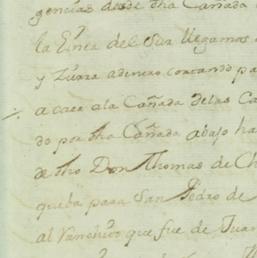 gencias desde dha Cañada
la Linea del Sur llegamos
y Zurza adinero cortando pa
a caer ala Cañada delas Ca
do por dha Cañada abajo ha
de dho Don Thomas de Ch
queba para San Pedro de
al Ranchito que fue de Juan